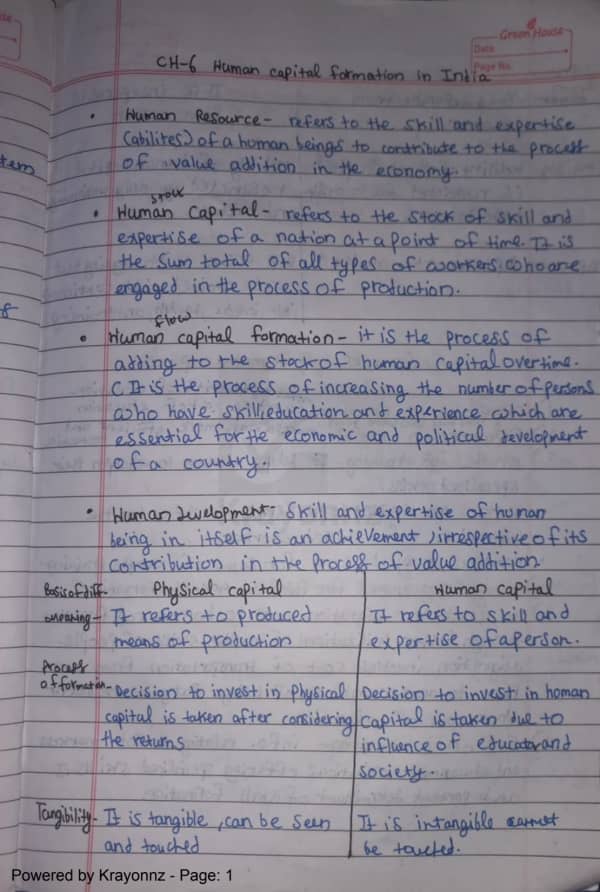 Green House
Date
Page No.
CH-6 Human capital formation in India
• Human Resource - refers to the skill and expertise
(abilites) of a human beings to contribute to the process
of value addition in the economy.
tem
stock
• Human Capital - refers to the stock of skill and
expertise of a nation at a point of time. It is
the sum total of all types of workers who are
engaged in the process of production.
flow
• Human capital formation - it is the process of
adding to the stock of human capital over time.
( It is the process of increasing the number of persons
who have skill, education and experience which are
essential for the economic and political development
of a country.
• Human Development - Skill and expertise of human
being in itself is an achievement, irrespective of its
contribution in the process of value addition
Basis of diff. Physical capital Human capital
Meaning - It refers to produced It refers to skill and
means of production expertise of a person.
Process
of formation - Decision to invest in physical Decision to invest in human
capital is taken after considering capital is taken due to
the returns influence of educator and
society.
Tangibility - It is tangible, can be seen It is intangible cannot
and touched be touched.
Powered by Krayonnz - Page: 1